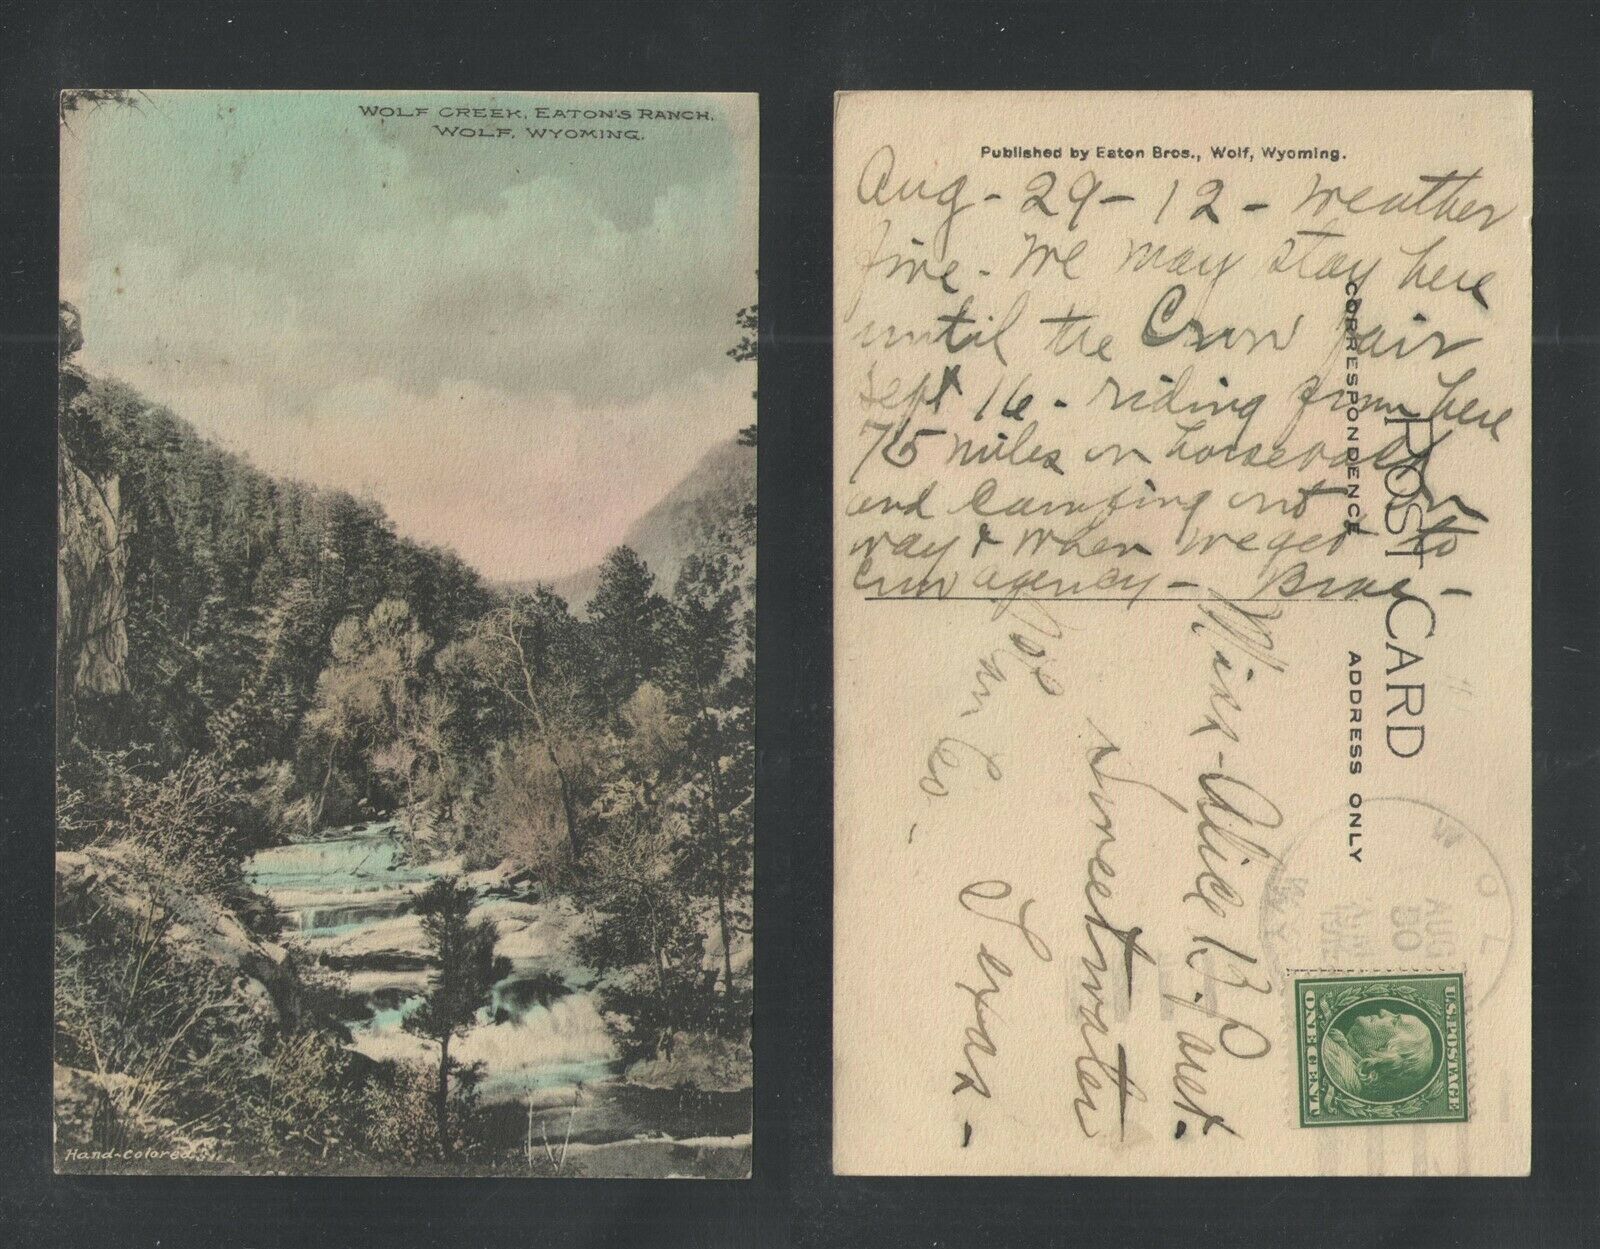 WOLF CREEK, EATON'S RANCH,
WOLF, WYOMING.
Hand-Colored
Published by Eaton Bros., Wolf, Wyoming.
Aug-29-12- Weather
fine - We may stay here
until the Crow fair
Sept 16 - riding from here
75 miles on horseback
and camping out on
way & when we get to
Crow agency -
CORRESPONDENCE
POST CARD
ADDRESS ONLY
Miss - Alice B.
Sweetwater
Texas -
Co -
WOLF
WYO
AUG
30
U.S. POSTAGE
ONE CENT